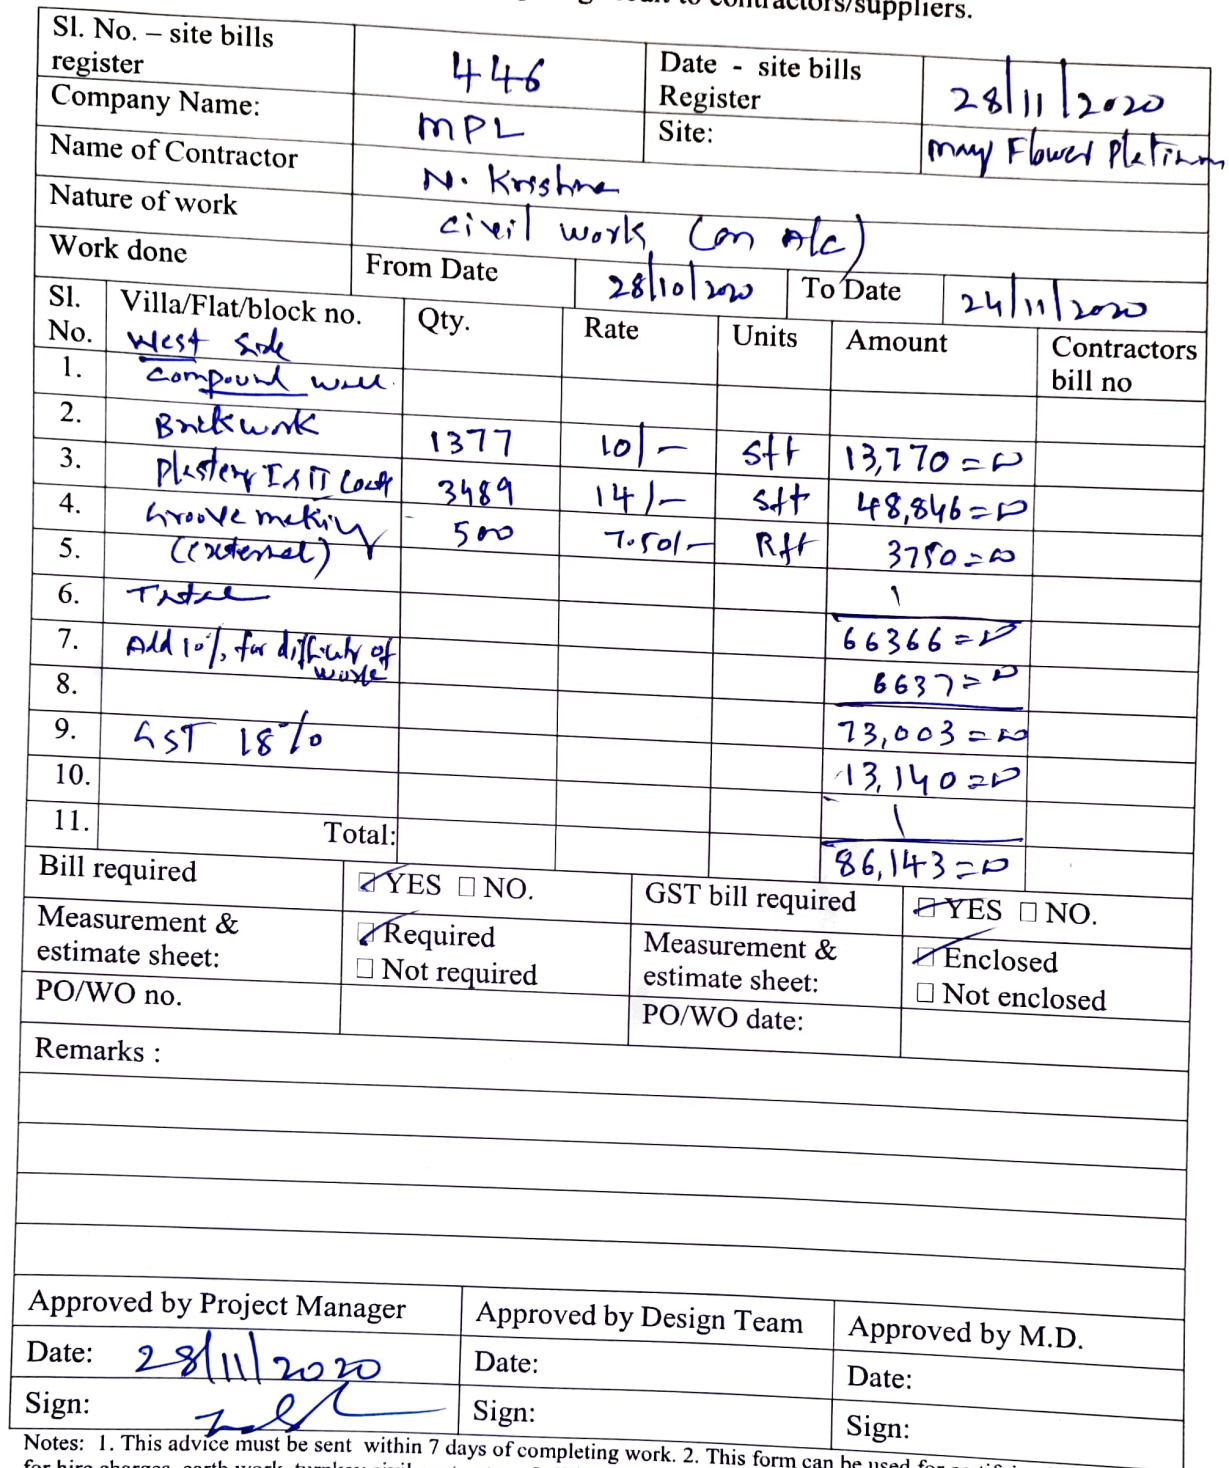 to contractors/suppliers.
Sl. No. – site bills register 446 Date - site bills Register 28/11/2020
Company Name: MPL Site: May Flower Platinum
Name of Contractor N. Krishna
Nature of work civil work (on A/c)
Work done From Date 28/10/2020 To Date 24/11/2020
Sl. No. Villa/Flat/block no. Qty. Rate Units Amount Contractors bill no
West Side
1. Compound wall.
2. Brickwork 1377 10/- sft 13,770=00
3. Plastery I & II Coats 3489 14/- sft 48,846=00
4. Groove making 500 7.50/- Rft 3750=00
5. (External)
6. Total 66366=00
7. Add 10%, for difficulty of work 6637=00
8. 73,003=00
9. GST 18% 13,140=00
10.
11. Total: 86,143=00
Bill required ☑ YES ☐ NO. GST bill required ☑ YES ☐ NO.
Measurement & estimate sheet: ☑ Required ☐ Not required Measurement & estimate sheet: ☑ Enclosed ☐ Not enclosed
PO/WO no. PO/WO date:
Remarks :
Approved by Project Manager Approved by Design Team Approved by M.D.
Date: 28/11/2020 Date: Date:
Sign: Sign: Sign:
Notes: 1. This advice must be sent within 7 days of completing work. 2. This form can be used for